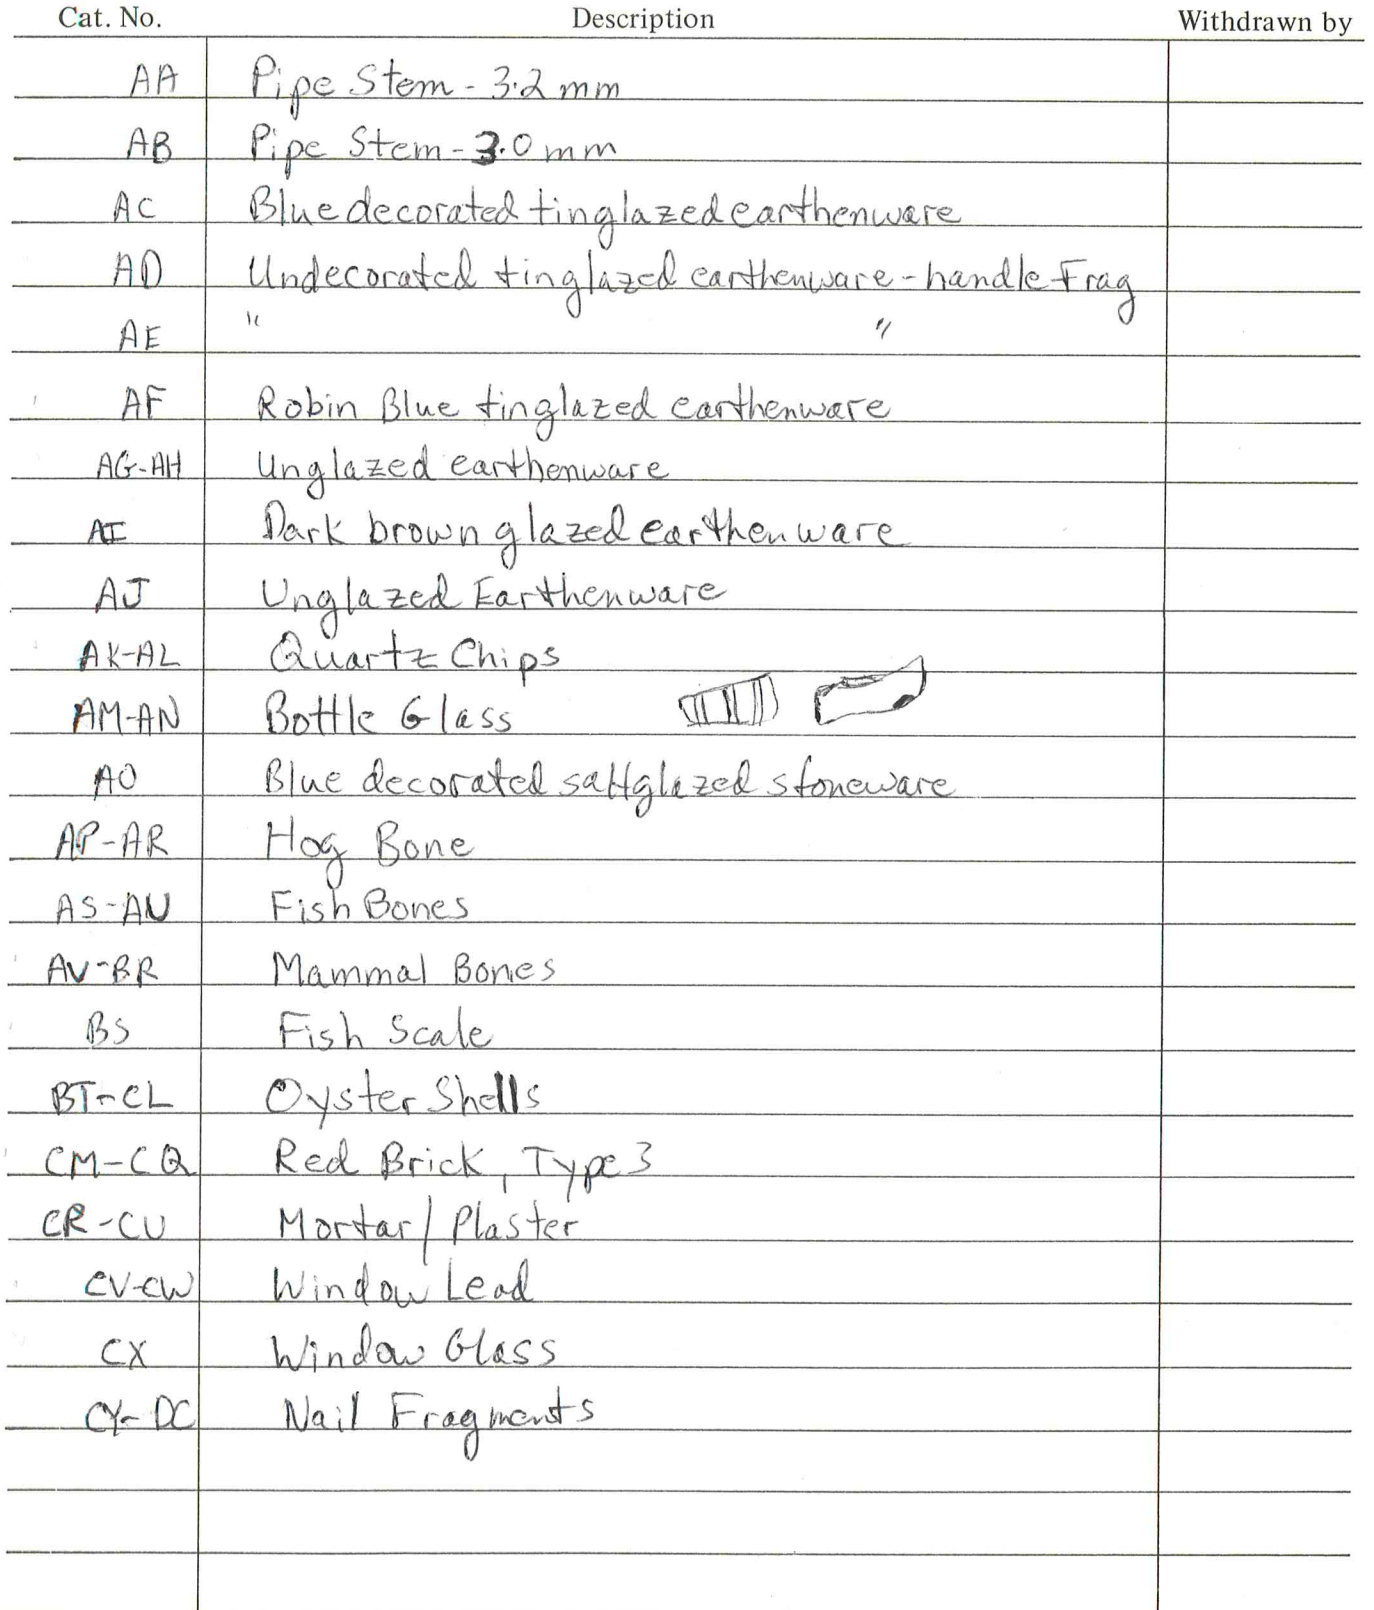 Cat. No. Description Withdrawn by
AA Pipe Stem - 3.2 mm
AB Pipe Stem - 3.0 mm
AC Blue decorated tinglazed earthenware
AD Undecorated tinglazed earthenware - handle Frag
AE " "
AF Robin Blue tinglazed earthenware
AG-AH Unglazed earthenware
AI Dark brown glazed earthenware
AJ Unglazed Earthenware
AK-AL Quartz Chips
AM-AN Bottle Glass
AO Blue decorated saltglazed stoneware
AP-AR Hog Bone
AS-AU Fish Bones
AV-BR Mammal Bones
BS Fish Scale
BT-CL Oyster Shells
CM-CQ Red Brick, Type 3
CR-CU Mortar/Plaster
CV-CW Window Lead
CX Window Glass
CY-DC Nail Fragments